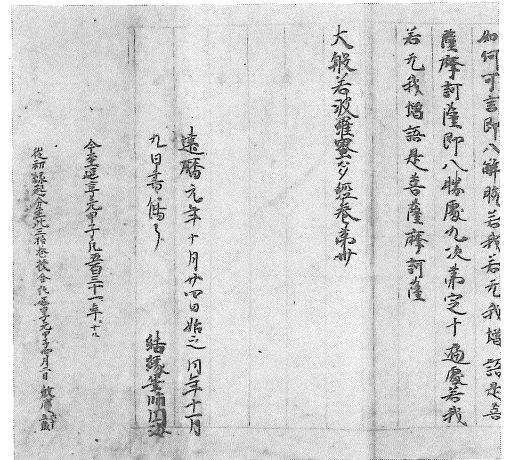 如何可言即八解脫若我若无我增語是菩
薩摩訶薩即八勝處九次第定十遍處若我
若无我增語是菩薩摩訶薩
大般若波羅蜜多經卷第卅
建曆元年十月廿四日始之同年十一月
九日書儁了
結緣
今至延享元甲子凡五百三十一年
従初 至此三拾卷校合 延享元甲子四月二日